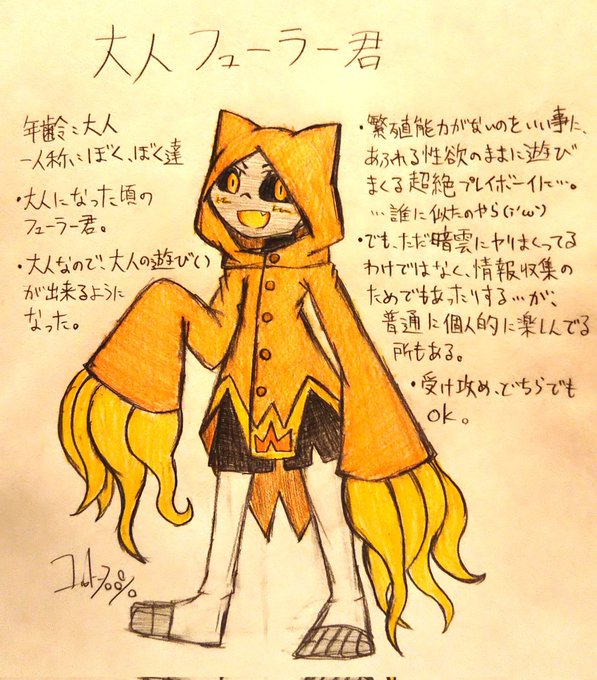 大人フューラー君
年齢:大人
一人称:ぼく、ぼく達
・大人になった頃の
フューラー君。
・大人なので、大人の遊び(い)
が出来るように
なった。
・繁殖能力がないのをいい事に、
あふれる性欲のままに遊び
まくる超絶プレイボーイに…。
…誰に似たのやら(;'ω')
・でも、ただ暗雲にヤりまくってる
わけではなく、情報収集の
ためでもあったりする…が、
普通に個人的に楽しんでる
所もある。
・受け攻め、どちらでも
OK。